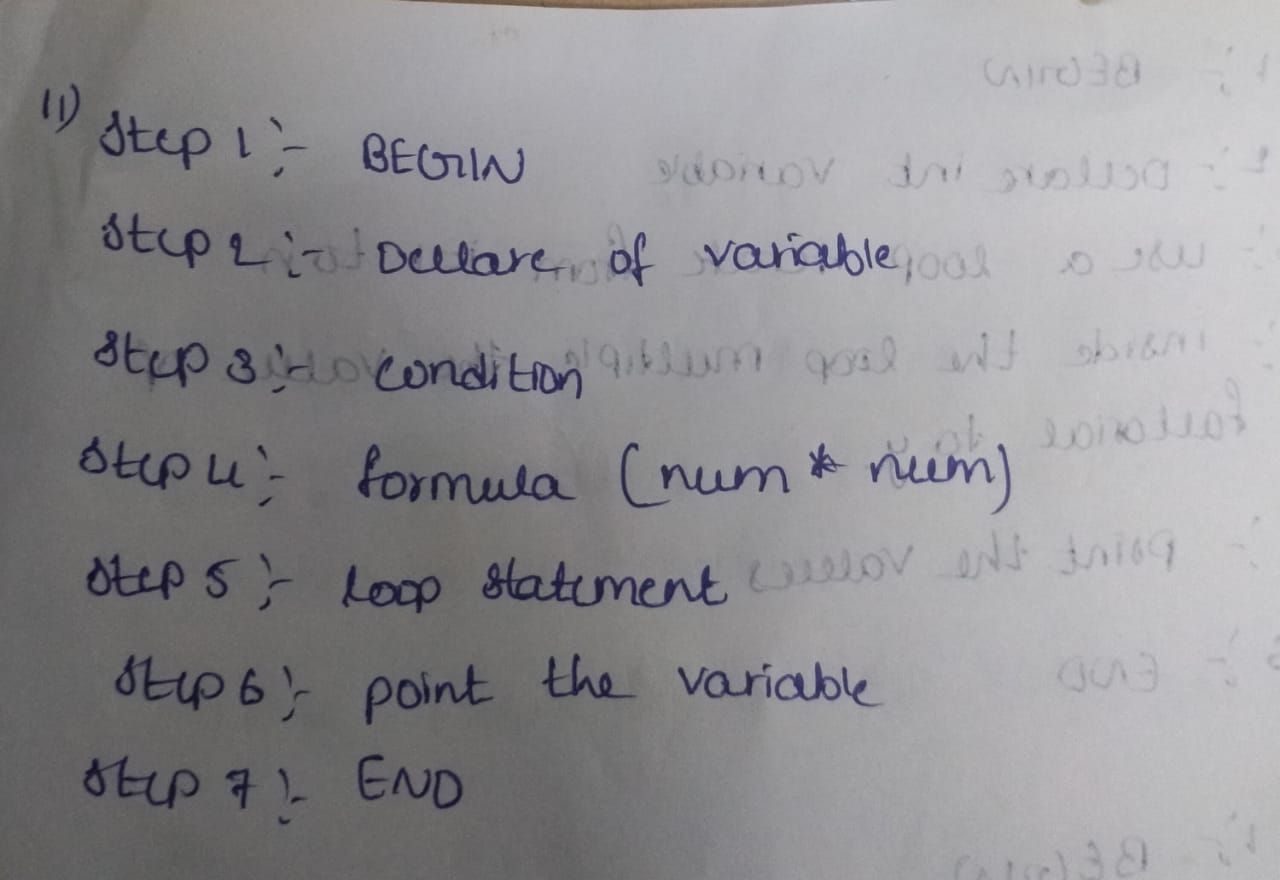 11) Step 1 :- BEGIN
Step 2 :- Declare of variable
Step 3 :- condition
Step 4 :- formula (num * num)
Step 5 :- Loop statement
Step 6 :- point the variable
Step 7 :- END